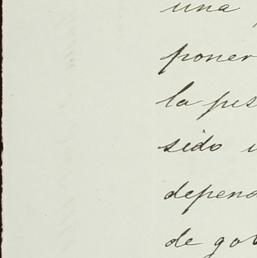 una
poner
la pes
sido
depend
de gob